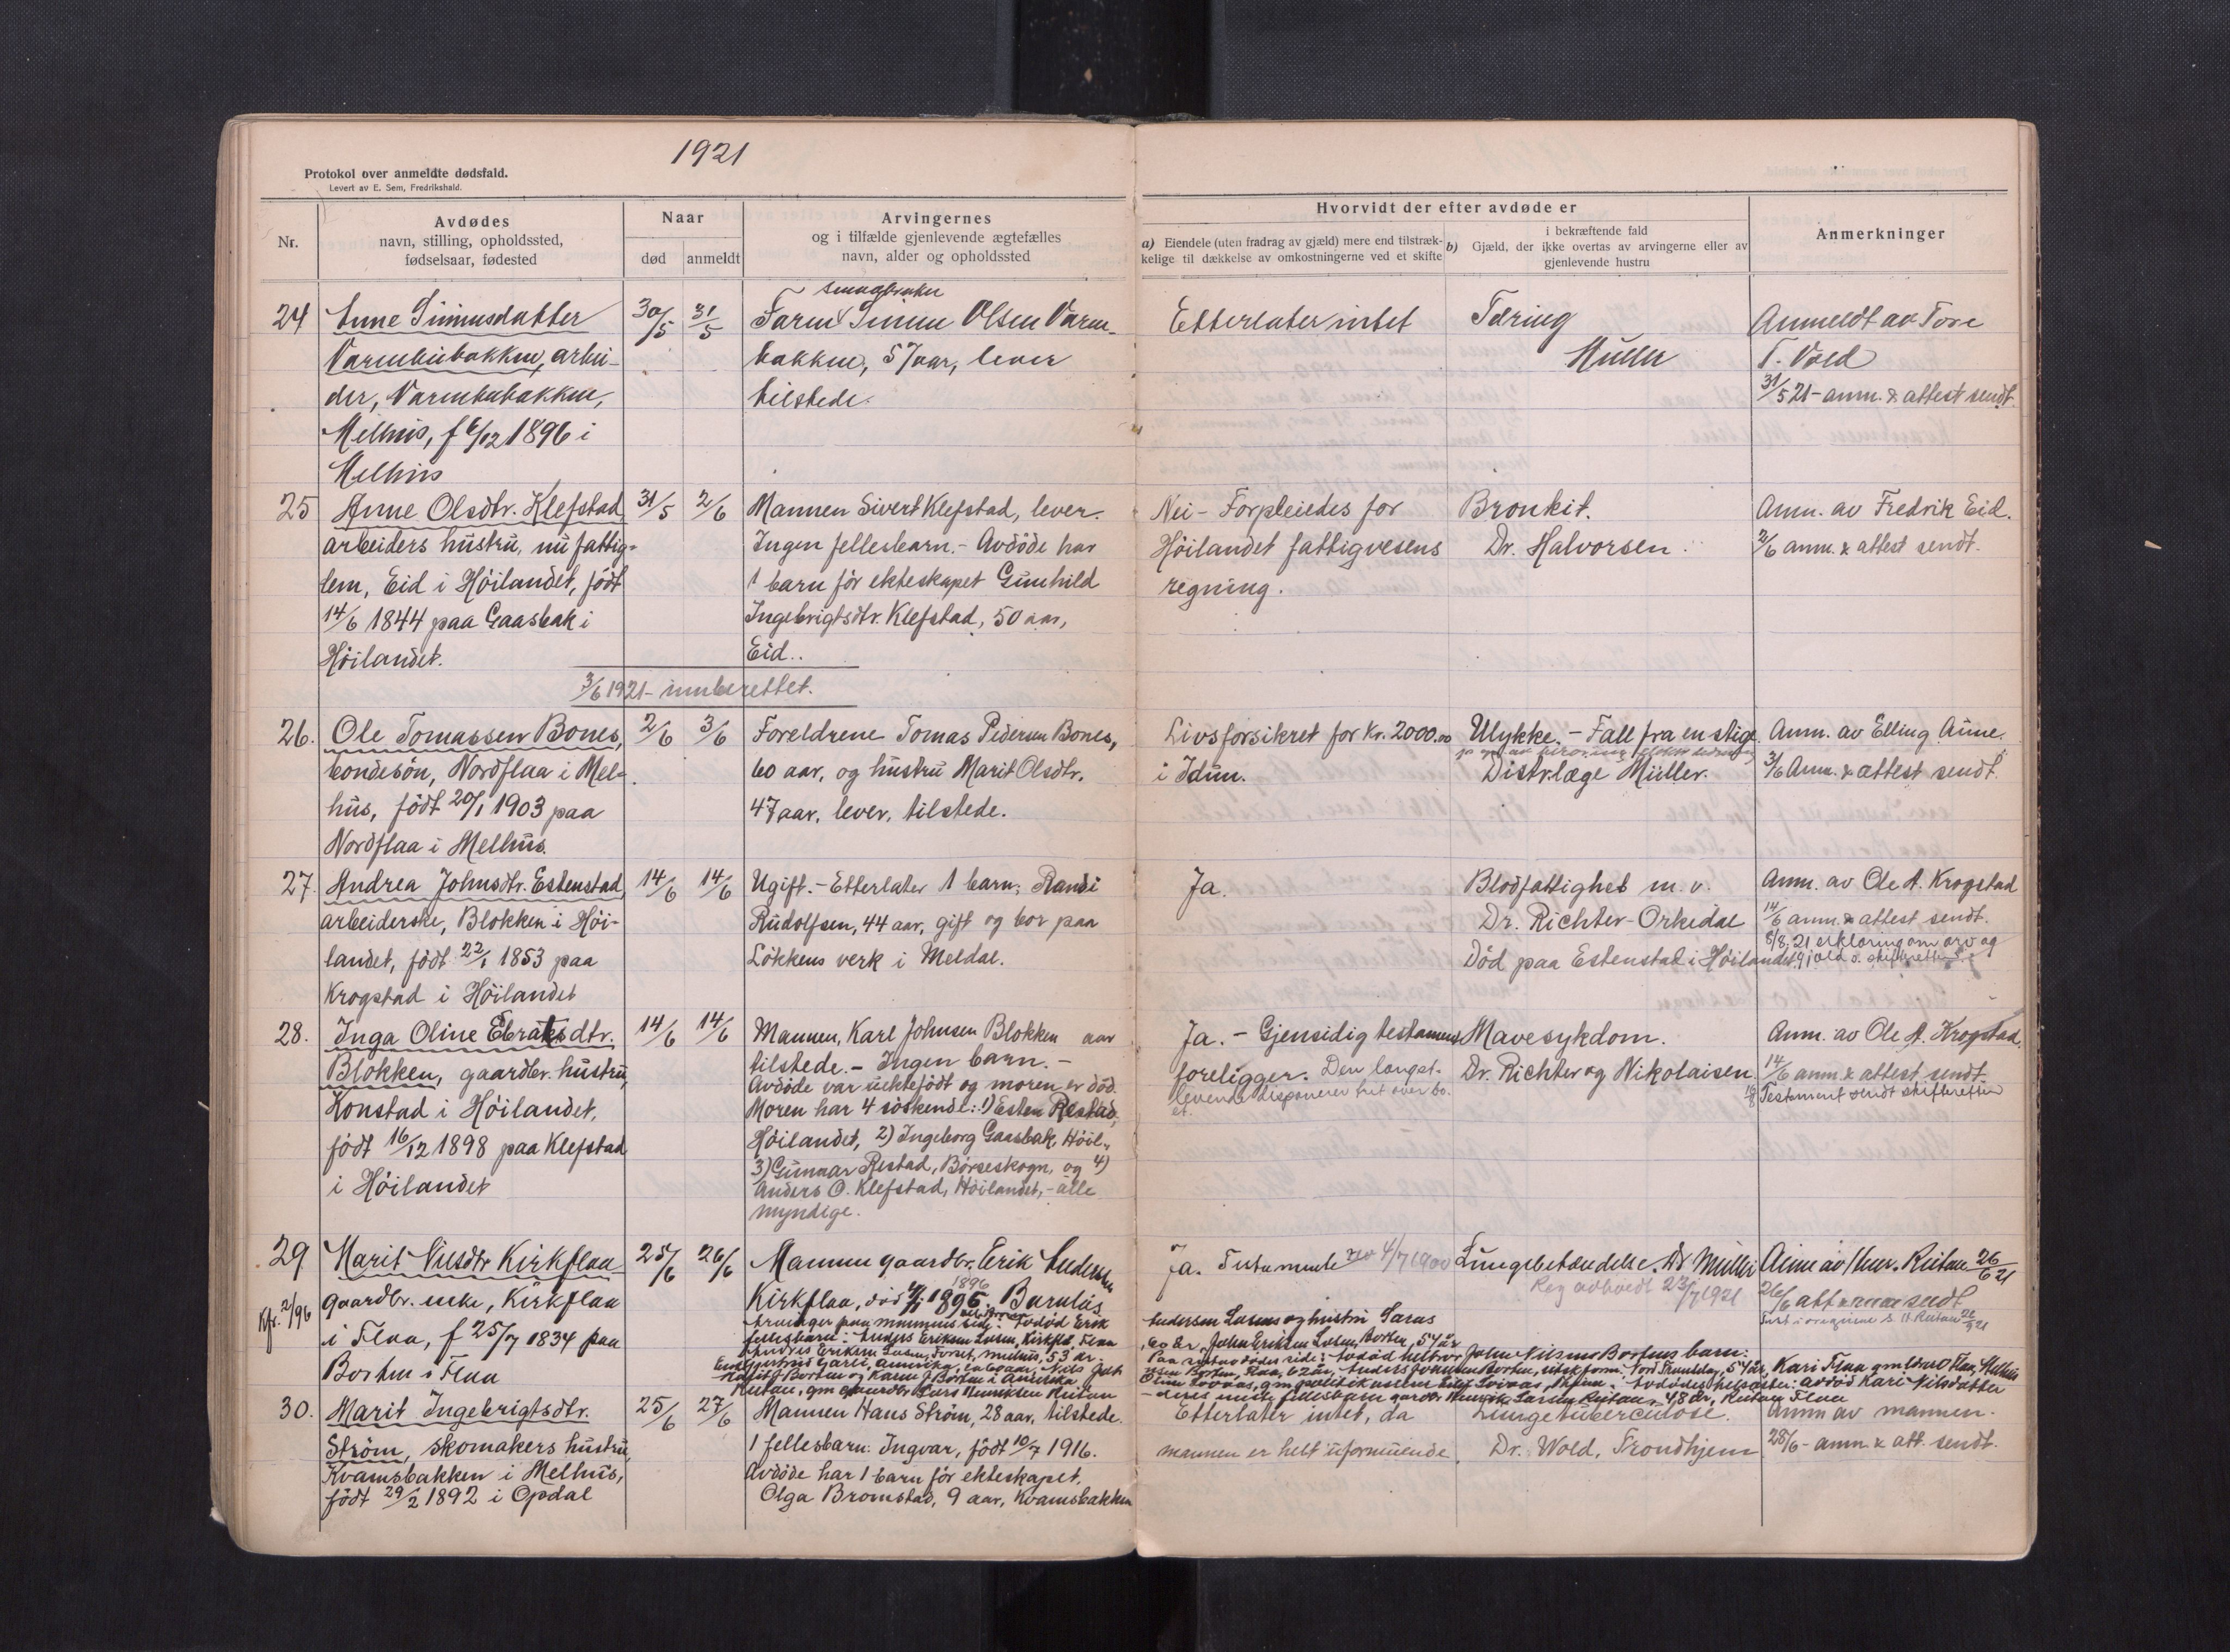 1921
Protokol over anmeldte dødsfald.
Levert av E. Sem, Fredrikshald.
Nr.
Avdødes
navn, stilling, opholdssted,
fødselsaar, fødested
Naar
død
anmeldt
Arvingernes
og i tilfælde gjenlevende ægtefælles
navn, alder og opholdssted
Hvorvidt der efter avdøde er
a) Eiendele (uten fradrag av gjæld) mere end tilstræk-
kelige til dækkelse av omkostningerne ved et skifte
i bekræftende fald
b) Gjæld, der ikke overtas av arvingerne eller av
gjenlevende hustru
Anmerkninger
24
Anne Simonsdatter
Varmbubakken, arbei-
der, Varmbubakken,
Melhus, f 6/12 1896 i
Melhus
30/5
31/5
smaabruker
Faren Simon Olsen Varm-
bakken, 57 aar, lever
tilstede.
Etterlater intet
Tæring
Müller
Anmeldt av Tore
T. Vold
31/5 21 - anm. & attest sendt.
25
Anne Olsdtr. Klefstad
arbeiders hustru, nu fattig-
lem, Eid i Höilandet, födt
14/6 1844 paa Gaasbak i
Höilandet.
31/5
2/6
Mannen Sivert Klefstad, lever.
Ingen fellesbarn. - Avdöde har
1 barn för ekteskapet Gunhild
Ingebrigtsdtr. Klefstad, 50 aar,
Eid..
Nei - Forpleiedes for
Höilandet fattigvesens
regning.
Bronkit.
Dr. Halvorsen.
Anm. av Fredrik Eid.
2/6 anm. & attest sendt.
3/6 1921 - innberettet.
26.
Ole Tomassen Bones,
bondesön, Nordflaa i Mel-
hus, födt 20/1 1903 paa
Nordflaa i Melhus.
2/6
3/6
Foreldrene Tomas Pedersen Bones,
60 aar, og hustru Marit Olsdtr.
47 aar, lever, tilstede.
Livsforsikret for kr. 2000.00
i Idun.
Ulykke. - Fall fra en stige
Distr.læge Müller.
Anm. av Elling Aune.
3/6 Anm. & attest sendt.
27.
Andrea Johnsdtr. Estenstad,
arbeiderske, Blokken i Höi-
landet, födt 22/1 1853 paa
Krogstad i Höilandet
14/6
14/6
Ugift. - Etterlater 1 barn, Randi
Rudolfsen, 44 aar, gift og bor paa
Lökkens verk i Meldal.
Ja.
Blodfattighet m. v.
Dr. Richter - Orkedal
Död paa Estenstad i Höilandet
Anm. av Ole A. Krogstad
14/6 anm. & attest sendt.
8/8. 21 erklæring om arv og
gjæld s. skifteretten
28.
Inga Oline Ebratsdtr.
Blokken, gaardbr. hustru,
Konstad i Höilandet,
födt 16/12 1898 paa Klefstad
i Höilandet
14/6
14/6
Mannen, Karl Johnsen Blokken aar
tilstede. - Ingen barn. -
Avdöde var uektefödt og moren er död.
Moren har 4 söskende: 1) Esten Restad,
Höilandet, 2) Ingeborg Gaasbak, Höil.,
3) Gunnar Restad, Börseskogn, og 4)
Anders O. Klefstad, Höilandet, - alle
myndige.
Ja. - Gjensidig testament
foreligger. Den længst-
levende disponerer fret over bo-
et.
Mavesykdom.
Dr. Richter og Nikolaisen.
Anm. av Ole A. Krogstad.
14/6 anm. & attest sendt.
16/8 Testament sendt skifteretten
29
Kfr. 2/96
Marit Nilsdtr Kirkflaa
gaardbr. enke, Kirkflaa
i Flaa, f 25/7 1834 paa
Borten i Flaa
25/6
26/6
Mannen gaardbr. Erik Andersen
Kirkflaa, död 1896. Barnlös
Arvinger paa mannens side:
fellesbarn: Anders Eriksen Losen, Kirkflå, Flaa
Reitan, gm gaardbr Lars Henriksen Reitan
Ja. Testamente 4/7 1900
Andersen Losens og hustru Saras
John Eriksen Losen, Borten, 54 år
John Nilsens Bortens barn:
Kari Flaa
Kari Nilsdatter
Lungebetændelse. Dr Müller
23/7 1921
Anm av Henr. Reitan 26/6 21
26/6 att & anm sendt
30.
Marit Ingebrigtsdtr.
Ström, skomakers hustru,
Kvamsbakken i Melhus,
födt 29/2 1892 i Opdal
25/6
27/6
Mannen Hans Ström, 28 aar, tilstede.
1 fellesbarn: Ingvar, födt 10/7 1916.
Avdöde har 1 barn för ekteskapet,
Olga Bromstad, 9 aar, Kvamsbakken
Etterlater intet, da
mannen er helt uformuende.
Lungetuberculose.
Dr. Wold, Trondhjem
Anm av mannen.
28/6 - anm & att. sendt.